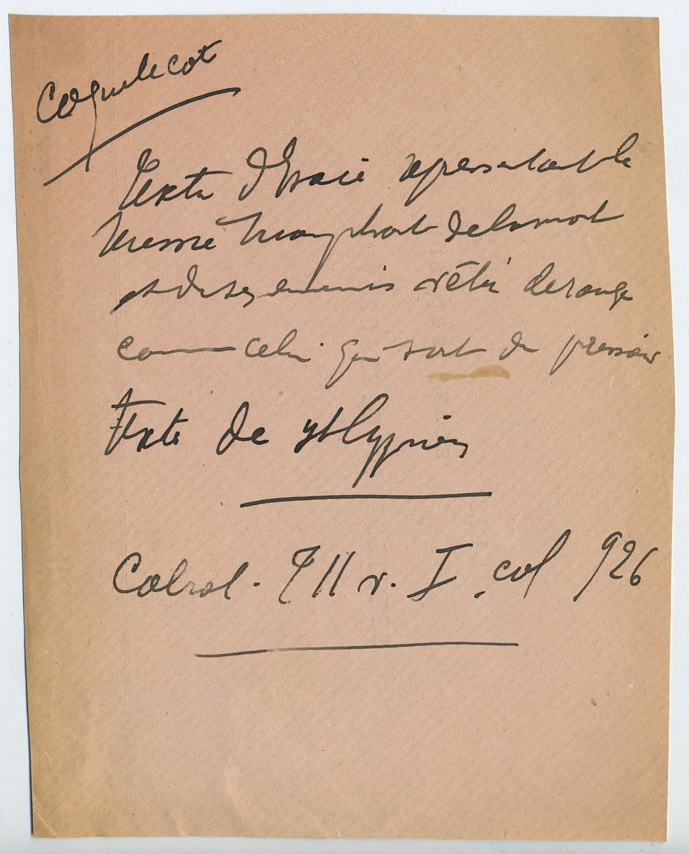 Coquelicot
Texte d'Isaïe représentant le
Messie triomphant de la mort
et de ses ennemis vêtu de rouge
comme celui qui sort du pressoir
Texte de st Cyprien
Cabrol. T II v. I. col 926